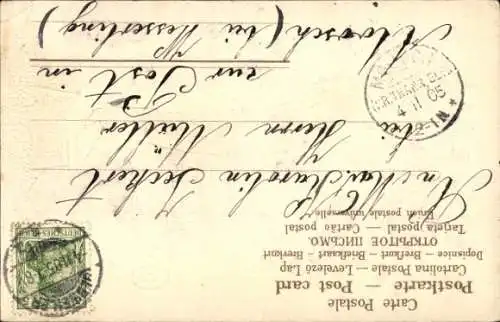 Carte Postale
Postkarte — Post card
Cartolina Postale — Levelező Lap
Dopisnice — Brefkort — Briefkaart — Brevkort
ОТКРЫТОЕ ПИСЬМО
Tarjeta postal — Cartão postal
Union postale universelle
DEUTSCHES REICH
An Mlle Karolin Seckert
bei Herrn Müller
zur Post in
Moosch (bei Wesserling)
4 11 05